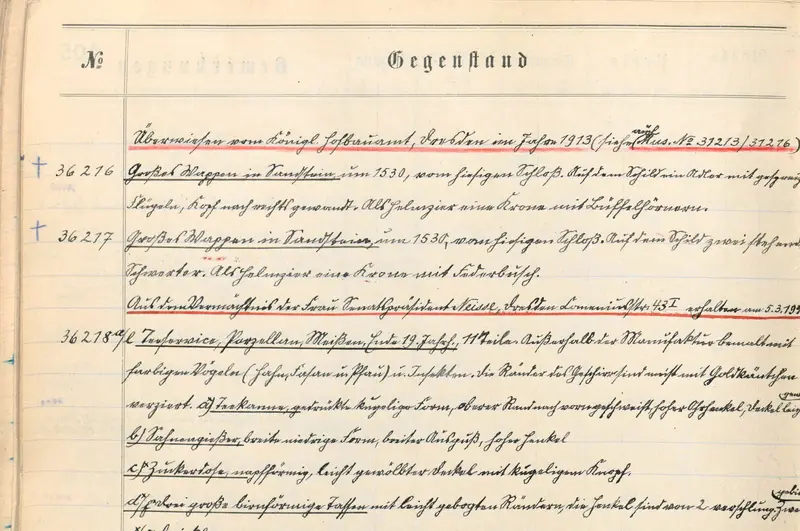 № Gegenstand
Überwiesen vom Königl. Hofbauamt, Dresden im Jahre 1913 (siehe auch Aus. № 31213/31216)
† 36216 Großes Wappen in Sandstein um 1530, vom hiesigen Schloß. Auf dem Schild ein Adler mit
Flügeln, Kopf nach rechts gewandt. Als Helmzier eine Krone mit Büffelhörnern.
† 36217 Großes Wappen in Sandstein, um 1530, vom hiesigen Schloß. Auf dem Schild zwei
Schwerter. Als Helmzier eine Krone mit Federbusch.
Aus dem Vermächtnis der Frau Senatspräsident Dresden Comeniusstr. 43 I erhalten am 5.3.
36218 a/l Teeservice, Porzellan, Meißen, Ende 19. Jahrh., 11 Teile. Außerhalb der Manufaktur bemalt mit
farbigen Vögeln (Hahn, Fasan u. Pfau) u. Insekten. Die Ränder des Geschirrs sind meist mit Goldkäntchen
verziert. a) Teekanne, gedrückte kugelige Form, oberer Rand nach vorn geschweift, hoher Ohrhenkel, Deckel
b) Sahnengießer, breite niedrige Form, breiter Ausguß, hoher Henkel
c) Zuckerdose, napfförmig, leicht gewölbter Deckel mit kugeligem Knopf.
drei große birnförmige Tassen mit leicht gebogten Rändern, die Henkel sind von 2